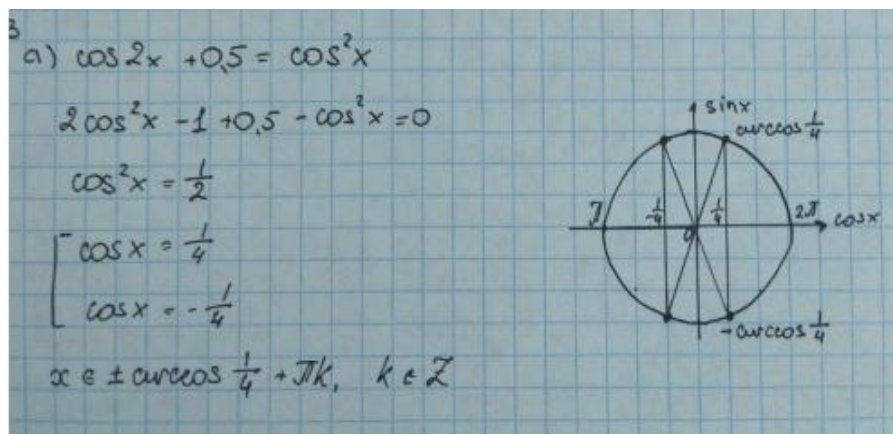 3
а) cos2x + 0,5 = cos²x
2cos²x - 1 + 0,5 - cos²x = 0
cos²x = 1/2
[ cosx = 1/4
cosx = - 1/4
x ∈ ± arccos 1/4 + πk, k ∈ Z
sinx
arccos 1/4
π -1/4 0 1/4 2π cosx
- arccos 1/4